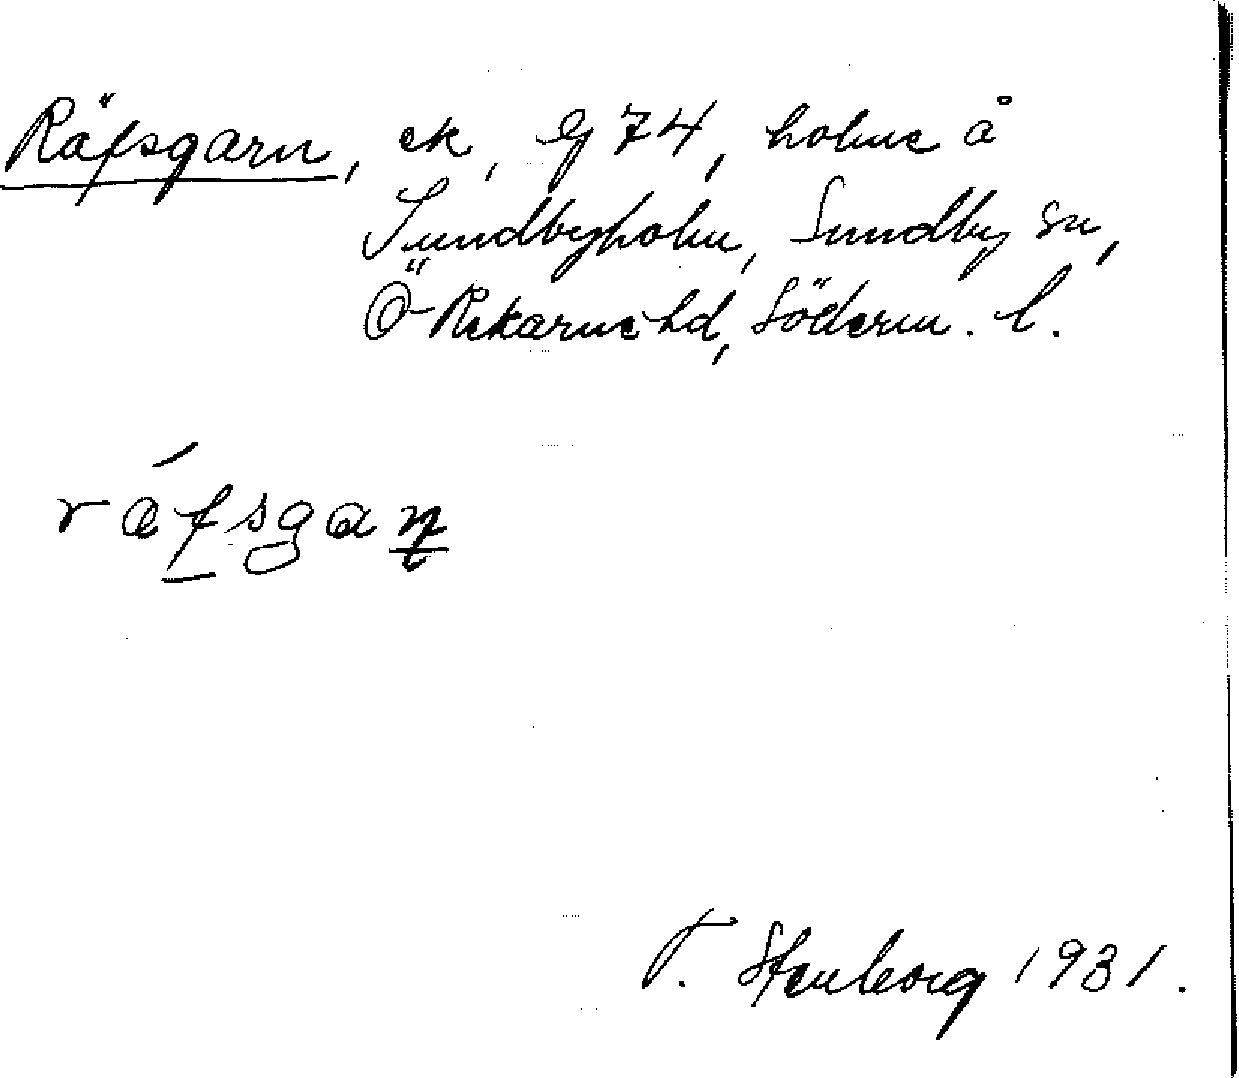 Räfsgarn, ek, G 74, holme å
Sundbyholm, Sundby sn,
Ö Rekarne hd, Söderm. l.
ráfsgaṇ
T. Stenborg 1931.